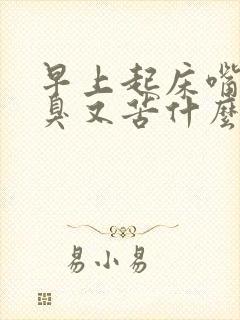 早上起床嘴
臭又苦什麼
易小易